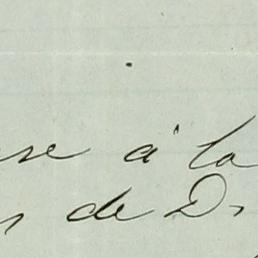 se à la
s de D